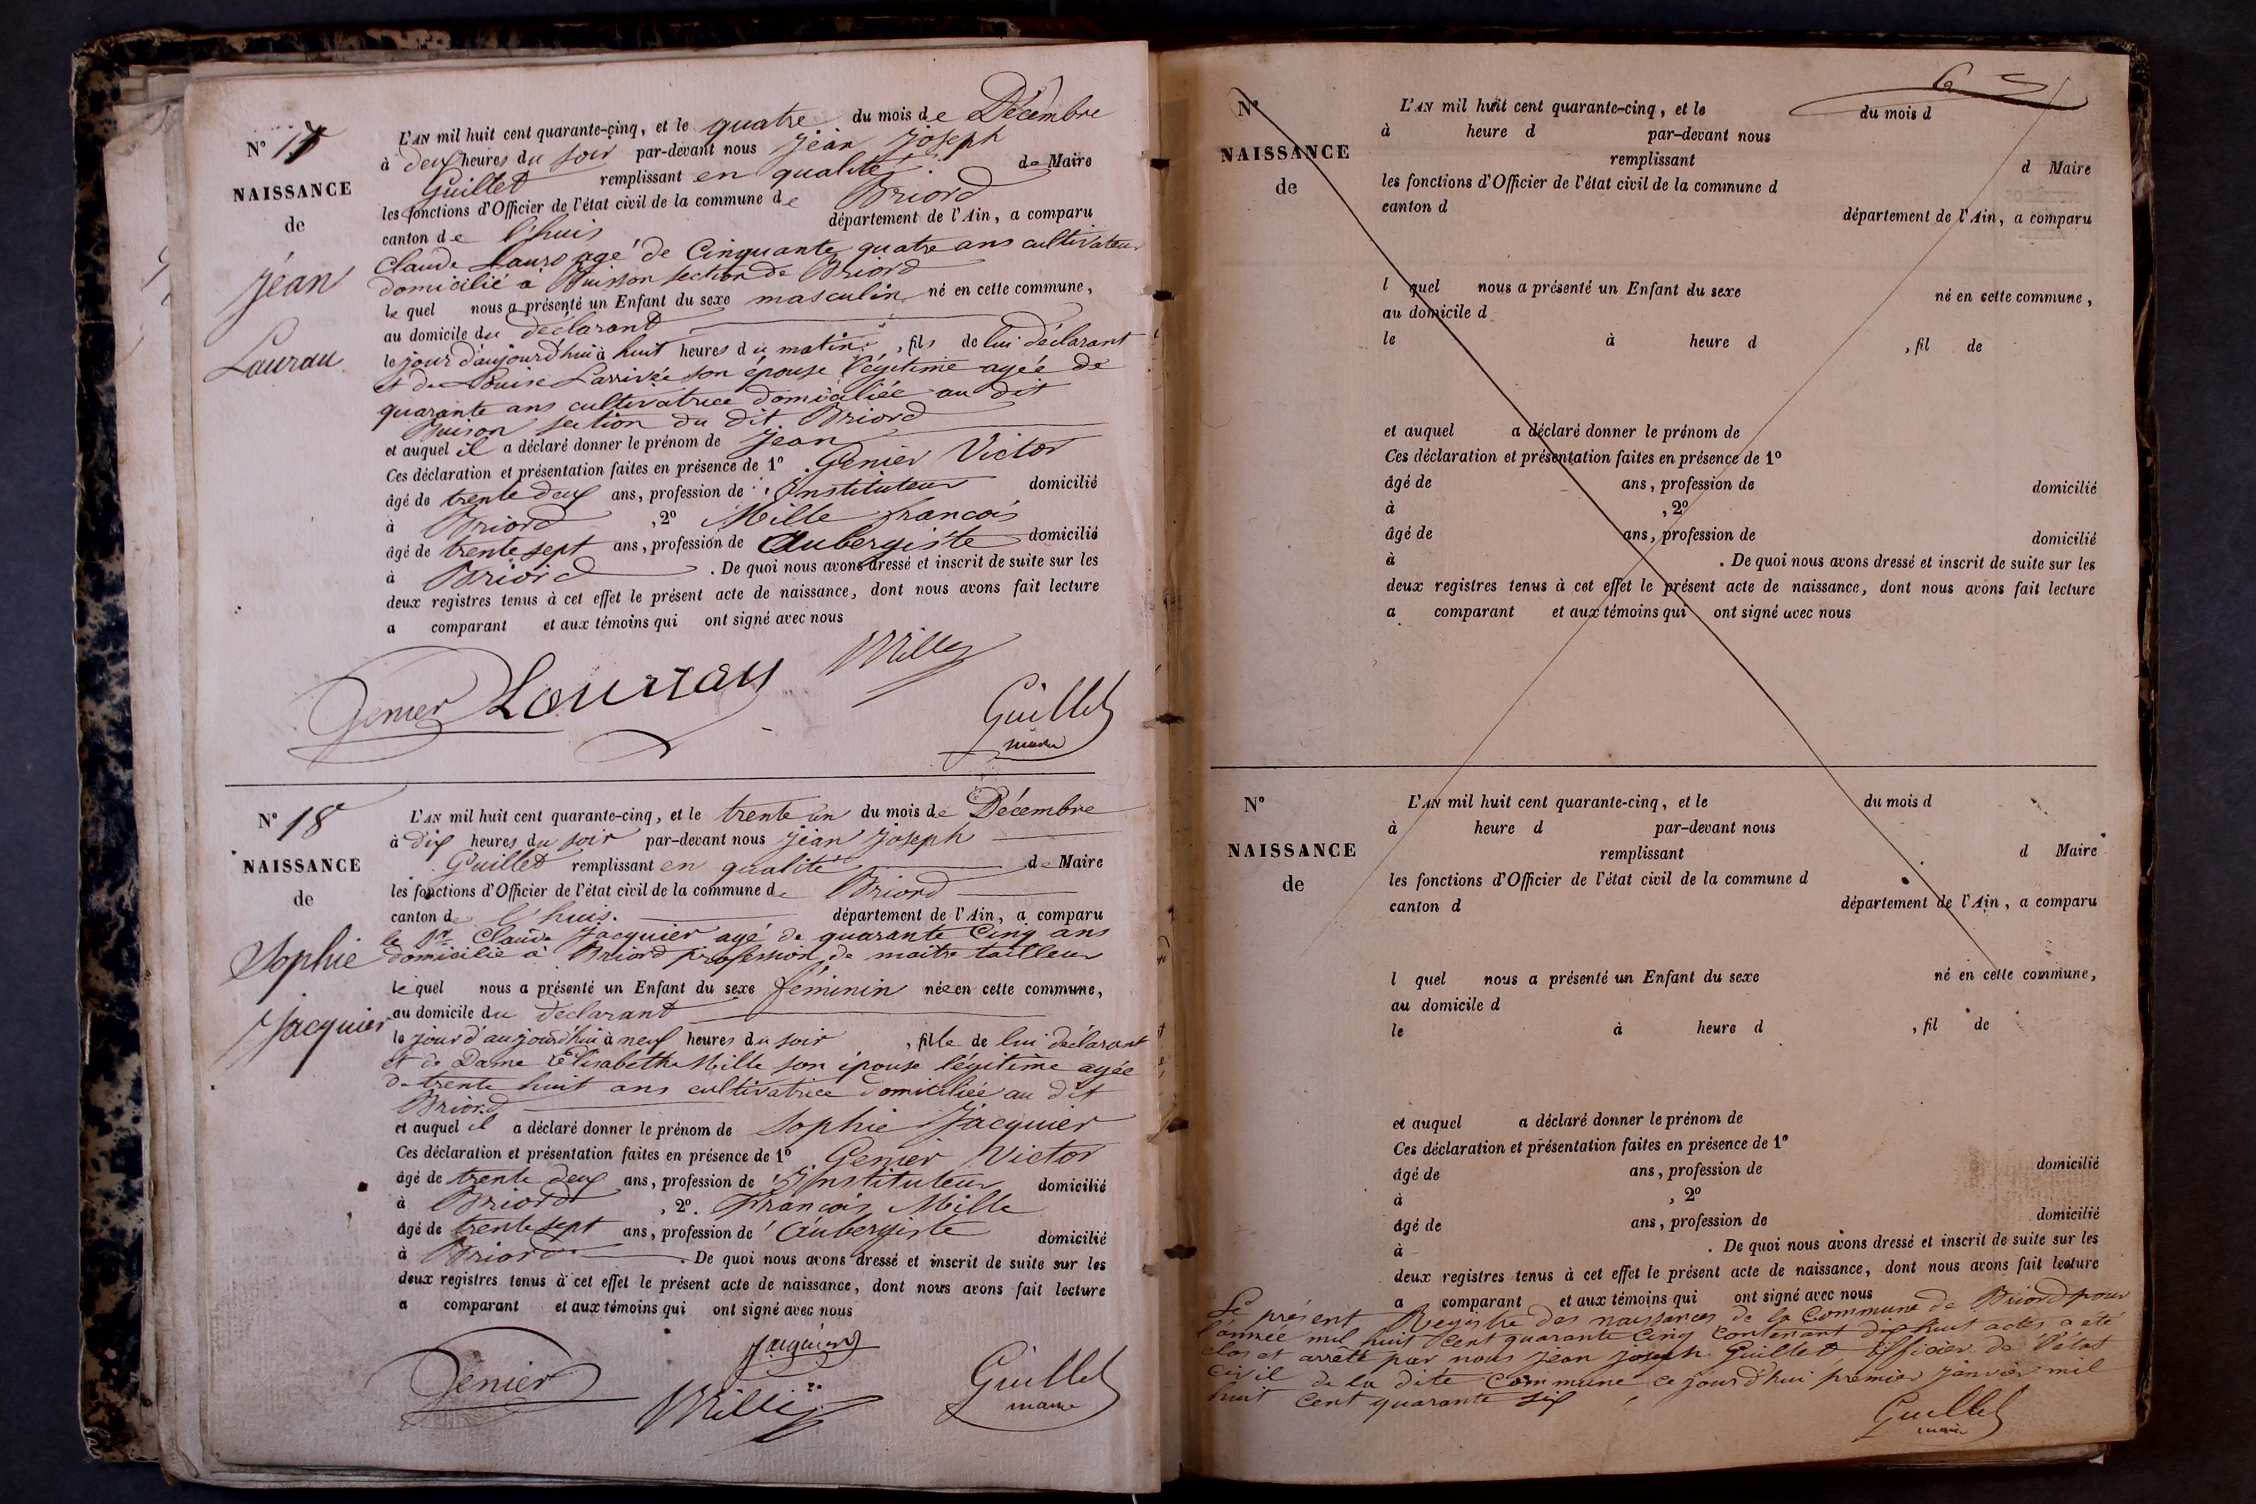 N° 17
NAISSANCE
de
Jean
Laurau
L'AN mil huit cent quarante-cinq, et le quatre du mois de Décembre
à deux heures du soir par-devant nous Jean Joseph
Guillet remplissant en qualité de Maire
les fonctions d'Officier de l'état civil de la commune de Briord
canton de l'huis département de l'Ain, a comparu
Claude agé de Cinquante quatre ans cultivateur
domicilié à Buisson section de Briord
le quel nous a présenté un Enfant du sexe masculin né en cette commune,
au domicile du déclarant
le jour d'aujourd'hui à huit heures du matin, fils de lui déclarant
et de Louise Larrivée son épouse légitime agée de
quarante ans cultivatrice domiciliée au dit
Buison section du dit Briord
et auquel il a déclaré donner le prénom de Jean
Ces déclaration et présentation faites en présence de 1° Genier Victor
âgé de trente deux ans, profession de Instituteur domicilié
à Briord, 2° Mille francois
âgé de trente sept ans, profession de Aubergiste domicilié
à Briord. De quoi nous avons dressé et inscrit de suite sur les
deux registres tenus à cet effet le présent acte de naissance, dont nous avons fait lecture
a comparant et aux témoins qui ont signé avec nous
Mille
Genier Lourrau
Guillet
maire
N° 18
NAISSANCE
de
Sophie
Jacquier
L'AN mil huit cent quarante-cinq, et le trente un du mois de Décembre
à dix heures du soir par-devant nous Jean Joseph
Guillet remplissant en qualité de Maire
les fonctions d'Officier de l'état civil de la commune de Briord
canton de l'huis. département de l'Ain, a comparu
le Sr Claude Jacquier agé de quarante Cinq ans
domicilié à Briord profession de maitre tailleur
le quel nous a présenté un Enfant du sexe féminin née en cette commune,
au domicile du déclarant
le jour d'aujourd'hui à neuf heures du soir, fille de lui déclarant
et de Dame Elisabeth Mille son épouse légitime agée
de trente huit ans cultivatrice domiciliée au dit
Briord
et auquel il a déclaré donner le prénom de Sophie Jacquier
Ces déclaration et présentation faites en présence de 1° Genier Victor
âgé de trente deux ans, profession de Instituteur domicilié
à Briord, 2°. François Mille
âgé de trente sept ans, profession de Aubergiste domicilié
à Briord. De quoi nous avons dressé et inscrit de suite sur les
deux registres tenus à cet effet le présent acte de naissance, dont nous avons fait lecture
a comparant et aux témoins qui ont signé avec nous
Jacquier
Genier Mille Guillet
maire
6
N°
NAISSANCE
de
L'AN mil huit cent quarante-cinq, et le du mois d
à heure d par-devant nous
remplissant d Maire
les fonctions d'Officier de l'état civil de la commune d
canton d département de l'Ain, a comparu
l quel nous a présenté un Enfant du sexe né en cette commune,
au domicile d
le à heure d , fil de
et auquel a déclaré donner le prénom de
Ces déclaration et présentation faites en présence de 1°
âgé de ans, profession de domicilié
à , 2°
âgé de ans, profession de domicilié
à . De quoi nous avons dressé et inscrit de suite sur les
deux registres tenus à cet effet le présent acte de naissance, dont nous avons fait lecture
a comparant et aux témoins qui ont signé avec nous
N°
NAISSANCE
de
L'AN mil huit cent quarante-cinq, et le du mois d
à heure d par-devant nous
remplissant d Maire
les fonctions d'Officier de l'état civil de la commune d
canton d département de l'Ain, a comparu
l quel nous a présenté un Enfant du sexe né en cette commune,
au domicile d
le à heure d , fil de
et auquel a déclaré donner le prénom de
Ces déclaration et présentation faites en présence de 1°
âgé de ans, profession de domicilié
à , 2°
âgé de ans, profession de domicilié
à . De quoi nous avons dressé et inscrit de suite sur les
deux registres tenus à cet effet le présent acte de naissance, dont nous avons fait lecture
a comparant et aux témoins qui ont signé avec nous
Le présent Registre des naissances de la Commune de Briord pour
l'année mil huit Cent quarante Cinq contenant dix huit actes a été
clos et arrêté par nous Jean Joseph Guillet officier de l'état
civil de la dite Commune ce jourd'hui premier Janvier mil
huit Cent quarante six
Guillet
maire